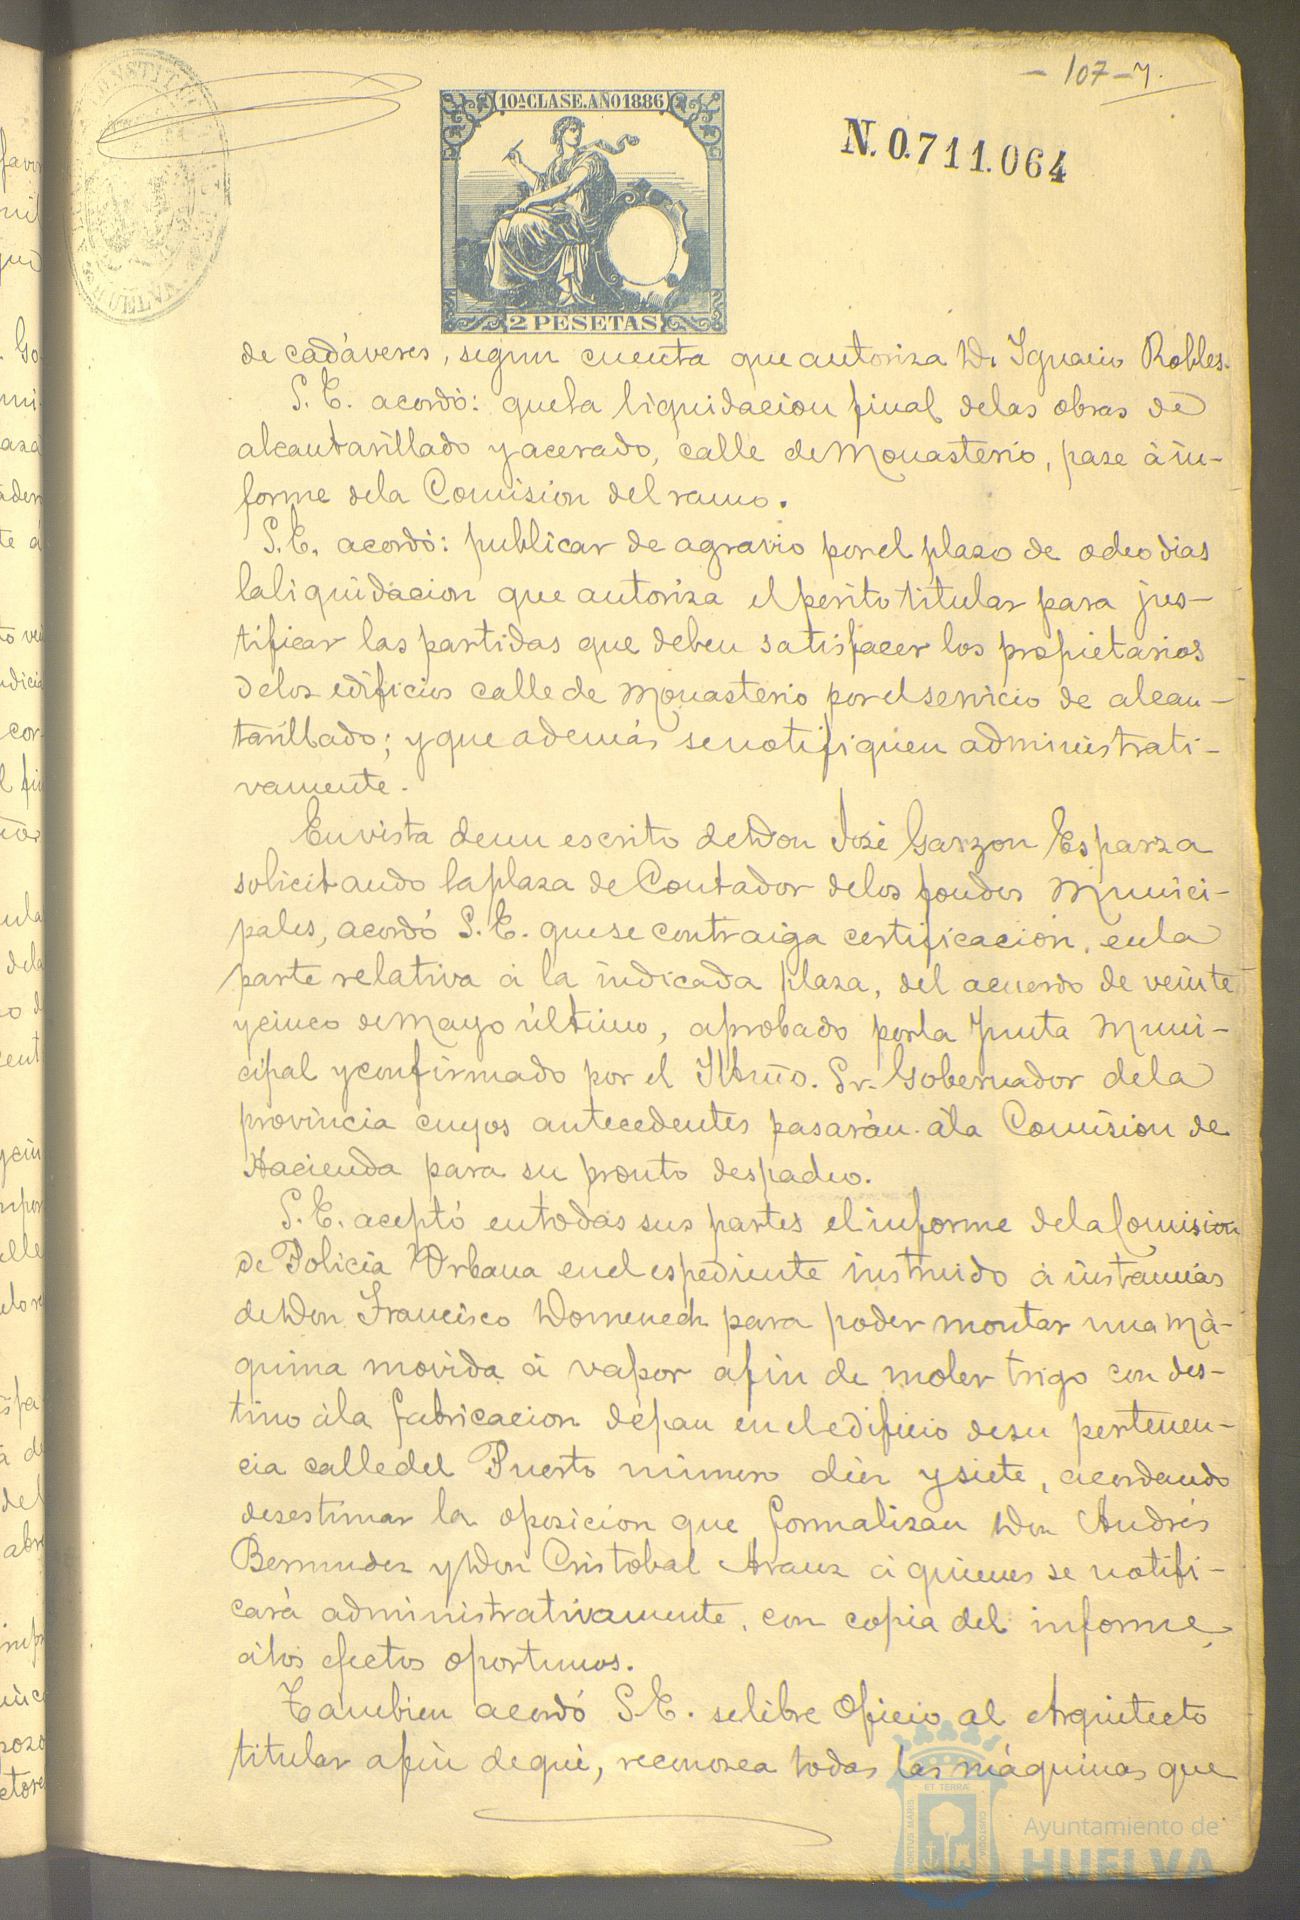 - 107 - 7.
10ª CLASE. AÑO 1886
N. 0.711.064
2 PESETAS
de cadáveres, segun cuenta que autoriza D. Ignacio Robles.
S. E. acordó: que la liquidacion final de las obras de
alcantarillado y acerado, calle de Monasterio, pase á in-
forme de la Comision del ramo.
S. E. acordó: publicar de agravio por el plazo de ocho dias
la liquidacion que autoriza el perito titular para jus-
tificar las partidas que deben satisfacer los propietarios
de los edificios calle de Monasterio por el servicio de alcan-
tarillado; y que además se notifiquen administrati-
vamente.
En vista de un escrito de Don José Garzon Esparza
solicitando la plaza de Contador de los fondos Munici-
pales, acordó S. E. que se contraiga certificacion, en la
parte relativa á la indicada plaza, del acuerdo de veinte
y cinco de Mayo último, aprobado por la Junta Muni-
cipal y confirmado por el Iltmo. Sr. Gobernador de la
provincia cuyos antecedentes pasarán á la Comision de
Hacienda para su pronto despacho.
S. E. aceptó en todas sus partes el informe de la Comision
de Policia Urbana en el espediente instruido á instancias
de Don Francisco Domenech para poder montar una má-
quina movida á vapor afin de moler trigo con des-
tino á la fabricacion de pan en el edificio de su pertenen-
cia calle del Puerto número diez y siete, acordando
desestimar la oposicion que formalizan Don Andrés
Bermudez y Don Cristobal Arauz á quienes se notifi-
cará administrativamente, con copia del informe,
á los efectos oportunos.
Tambien acordó S. E. se libre oficio al Arquitecto
titular afin de que, reconozca todas las máquinas que
Ayuntamiento de
HUELVA